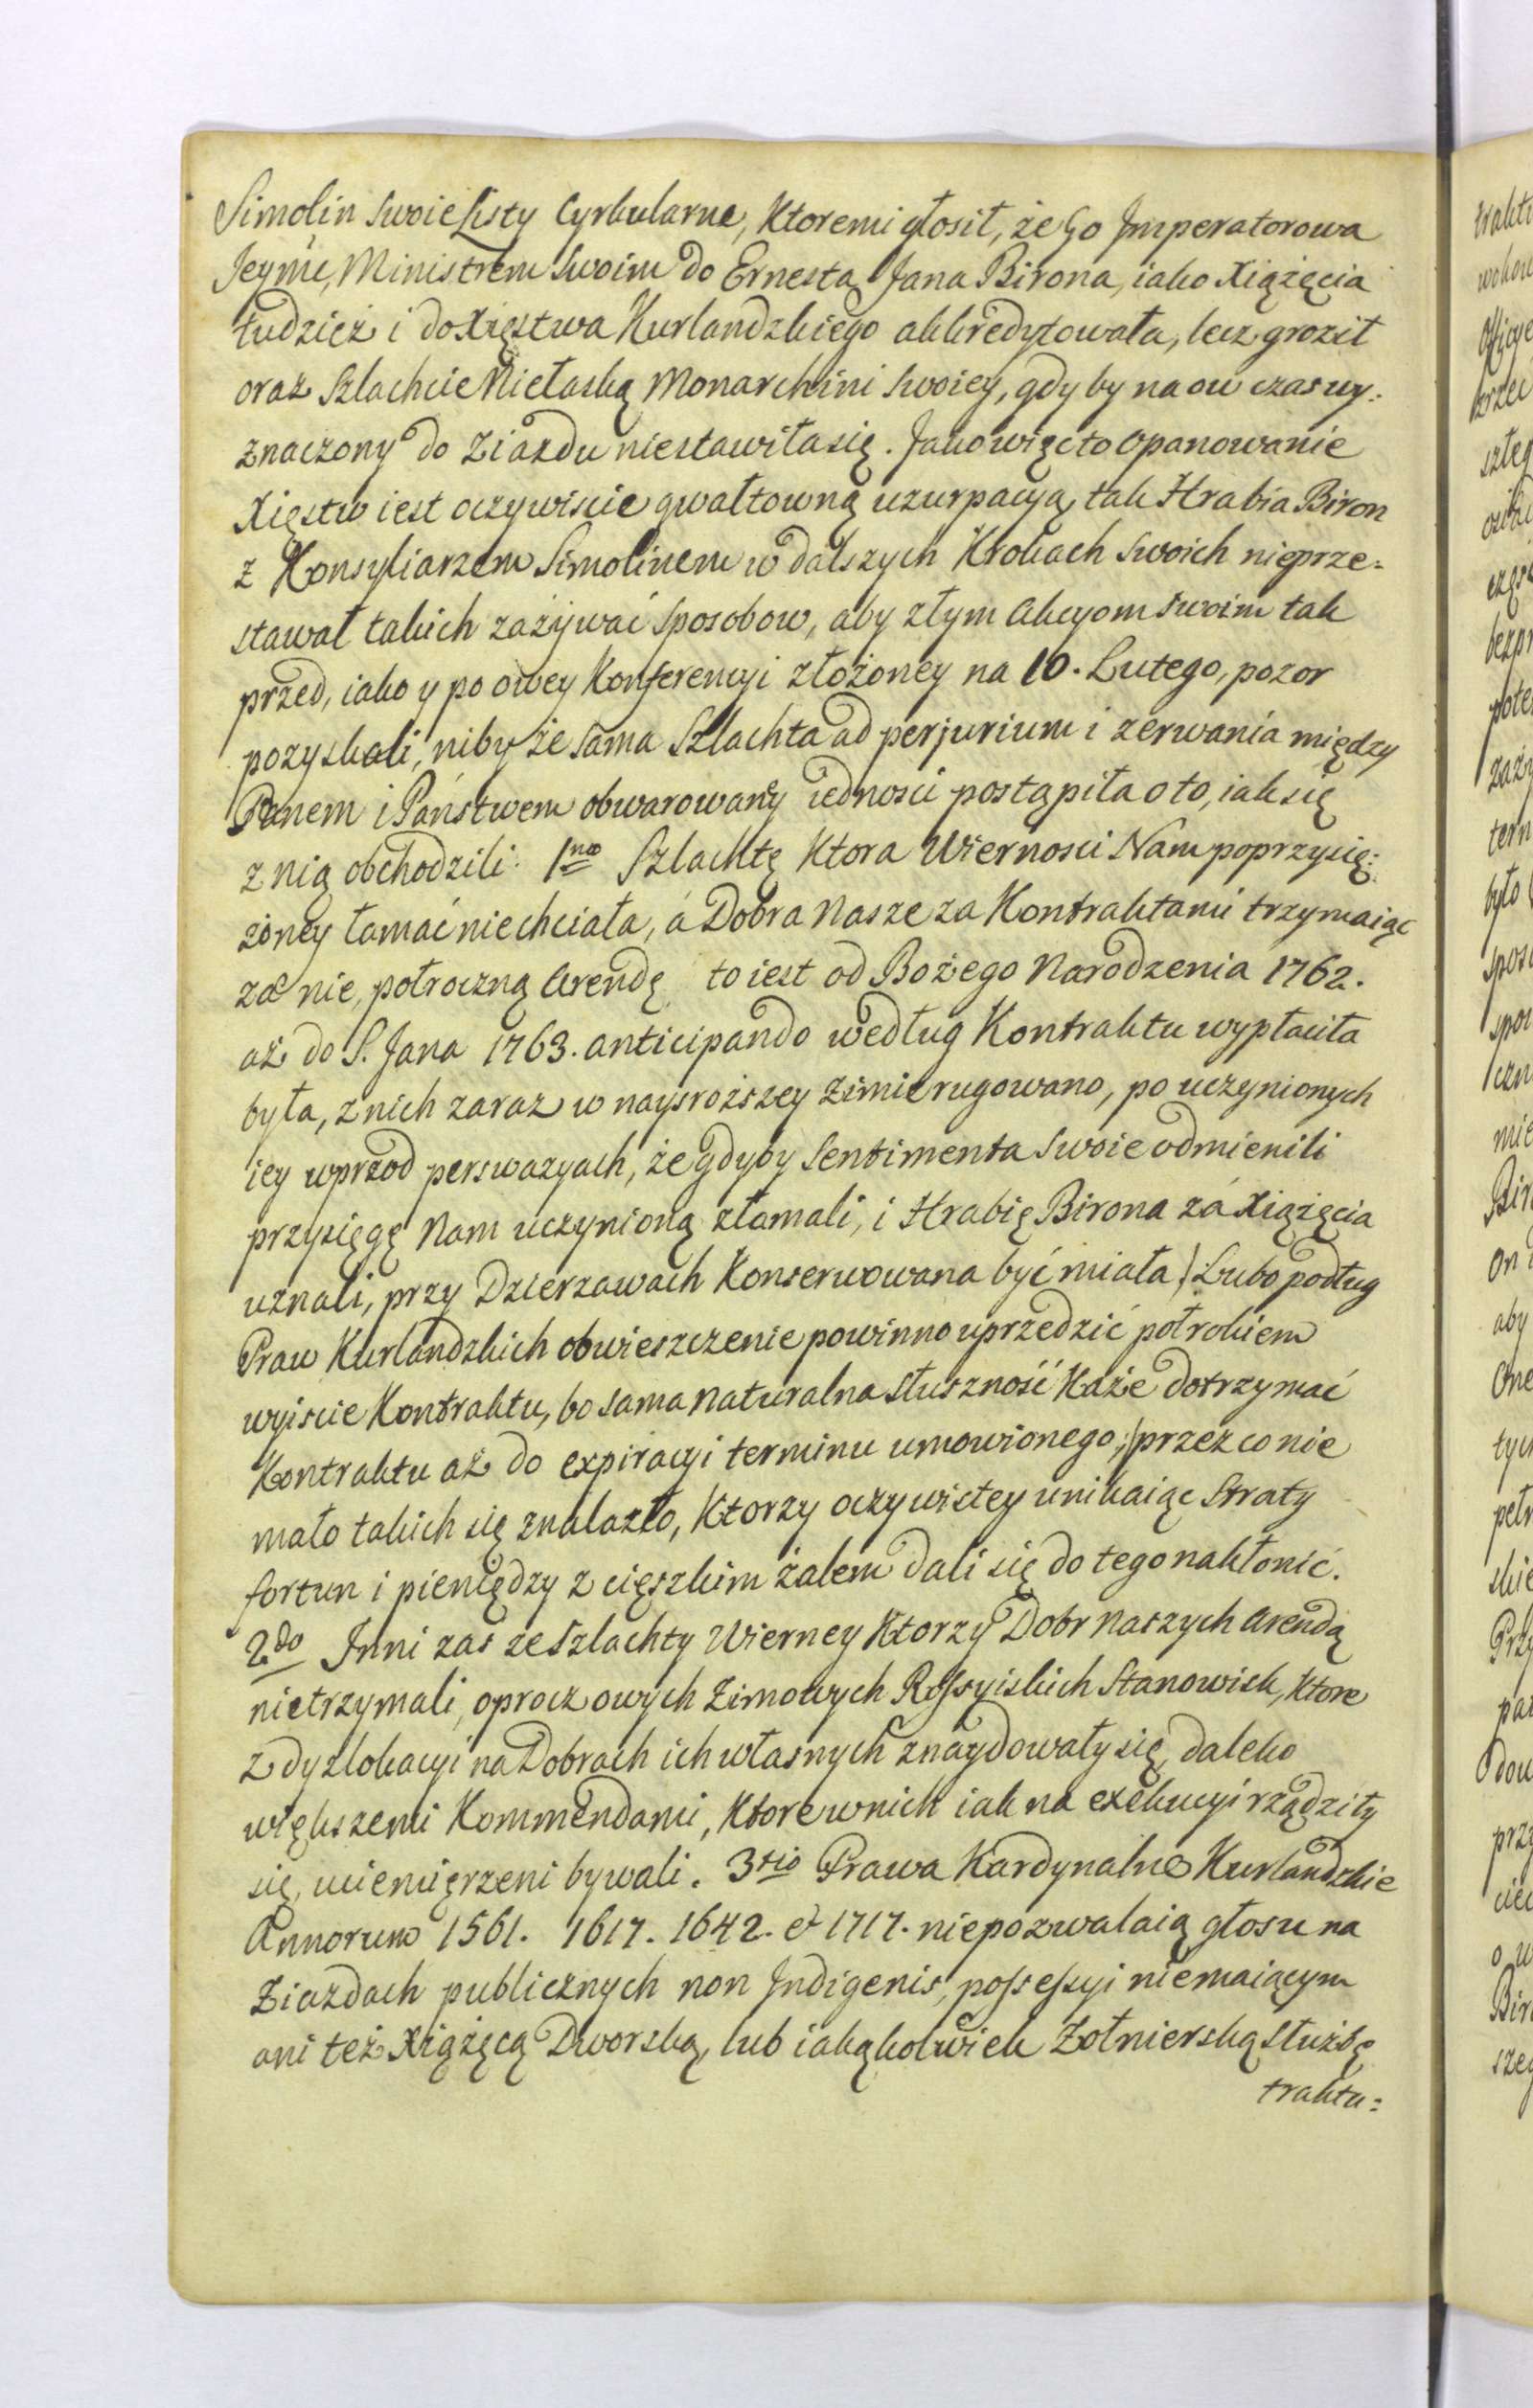 Simolin swoie Listy Cyrkularne, Ktoremi głosił, że Go Imperatorowa
Jeymć, Ministrem Swoim do Ernesta Jana Birona, iako Xiążęcia
tudzież i do Xięstwa Kurlandzkiego akkredytowała, lecz groził
oraz Szlachcie Niełaską Monarchini Swoiey, gdy by na ow czas wy:
znaczony do Ziazdu niestawiła się. Jako więc to Opanowanie
Xięstw iest oczywiscie gwałtowną uzurpacyą, tak Hrabia Biron
z Konsyliarzem Simolinem w dalszych Krokach Swoich nieprze:
stawał takich zażywać sposobow, aby złym Akcyom Swoim tak
przed, iako y po owey Konferencyi złożoney na 10. Lutego, pozor
pozyskali, niby że sama Szlachta ad perjurium i zerwania między
Panem i Państwem obwarowany iednosci postąpiła oto, iak się
z nią obchodzili. 1mo Szlachtę Ktora Wiernosci Nam poprzysię:
żoney łamać niechciała, á Dobra Nasze za Kontraktami trzymaiąc
za nie, połroczną Arendę to iest od Bożego Narodzenia 1762.
aż do S. Jana 1763. anticipando według Kontraktu wypłaciła
była, z nich zaraz w naysroższey Zimie rugowano, po uczynionych
iey wprzod perswazyach, że gdyby Sentimenta Swoie odmienili
przysięgę Nam uczynioną złamali, i Hrabię Birona zá Xiążęcia
uznali, przy Dzierzawach Konserwowana być miała / Lubo podług
Praw Kurlandzkich obwieszczenie powinno uprzedzić połrokiem
wyiscie Kontraktu, bo sama Naturalna słuszność Każe dotrzymać
Kontraktu aż do expiracyi terminu umowionego;/ przez co nie
mało takich się znalazło, Ktorzy oczywistey unikaiąc Straty
fortun i pieniędzy z cięszkim żalem dali się do tego nakłonić.
2do Inni zas ze Szlachty Wierney Ktorzy Dobr Naszych Arendą
nietrzymali, oprocz owych Zimowych Rossyiskich Stanowisk, Ktore
z dyzlokacyi na Dobrach ich własnych znaydowały się, daleko
większemi Kommendami, Ktore w nich iak na exekucyi rządziły
się, uciemięrzeni bywali. 3tio Prawa Kardynalne Kurlandzkie
Annorum 1561. 1617. 1642. & 1717. niepozwalaią głosu na
Ziazdach publicznych non Indigenis, possessyi niemaiącym
ani też Xiążęcą Dworską, lub iakąkolwiek Żołnierską służbę
traktu: